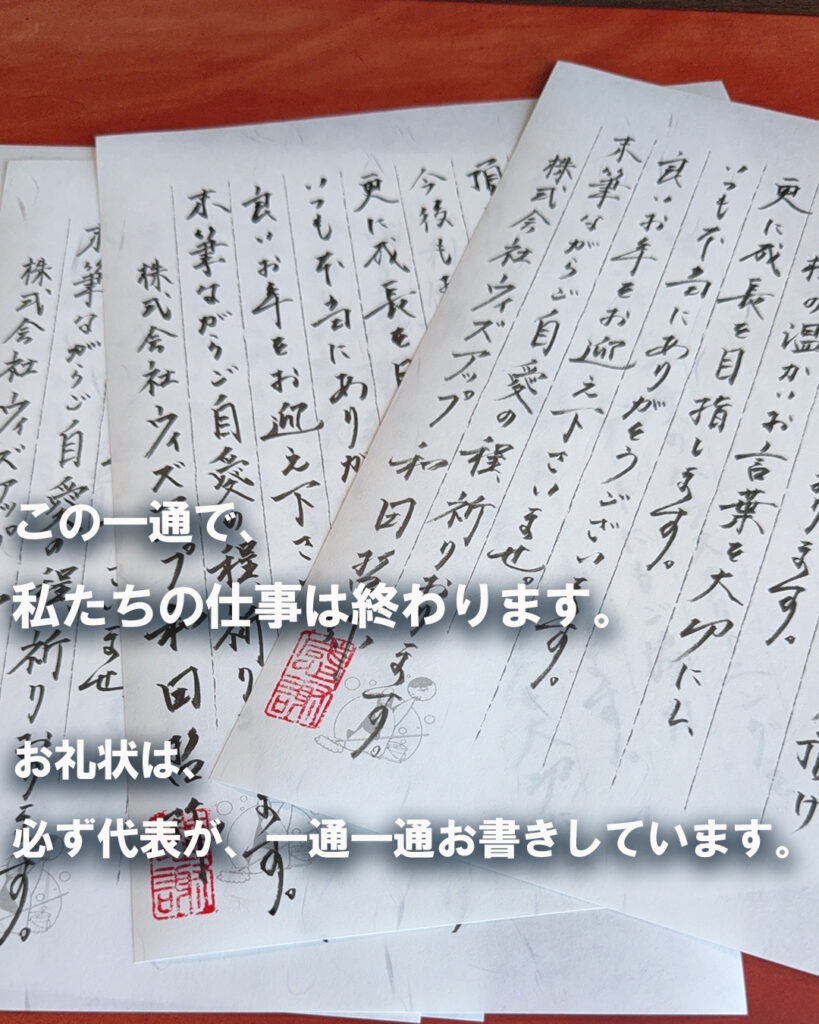 この一通で、
私たちの仕事は終わります。
お礼状は、
必ず代表が、一通一通お書きしています。
おります。
頂け
の温かいお言葉を大切にし
更に成長を目指します。
いつも本当にありがとうございます。
良いお年をお迎え下さいませ。
末筆ながらご自愛の程、祈りおります。
株式会社ウィズアップ 和田
感謝
頂
今後も
更に成長を目
いつも本当にありが
良いお年をお迎え下さい
末筆ながらご自愛の程祈り
ます。
株式会社ウィズアップ 和田
謝
ませ
末筆ながらご自愛の程祈りおります。
株式会社ウィズアップ